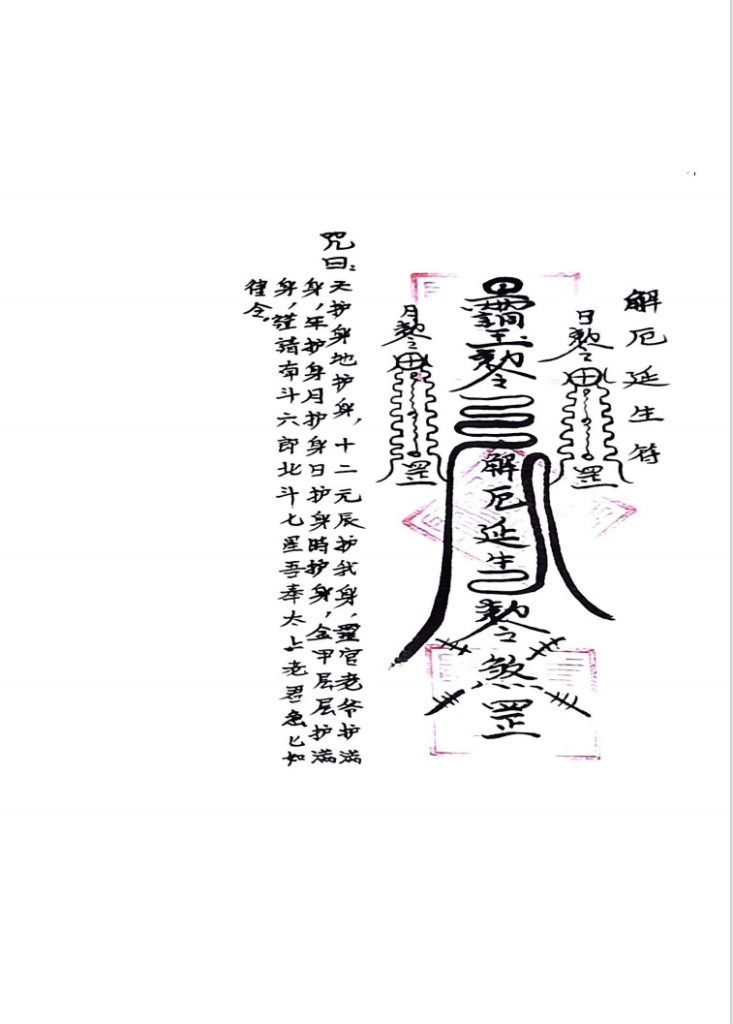 解厄延生符
日勅令
罡
勅令
解厄延生
勅令
煞
罡
月勅令
罡
咒曰:天护身地护身,十二元辰护我身,靈官老爷护满
身,年护身月护身日护身時护身,金甲层层护满
身,謹請南斗六郎北斗七星吾奉太上老君急匕如
律令。